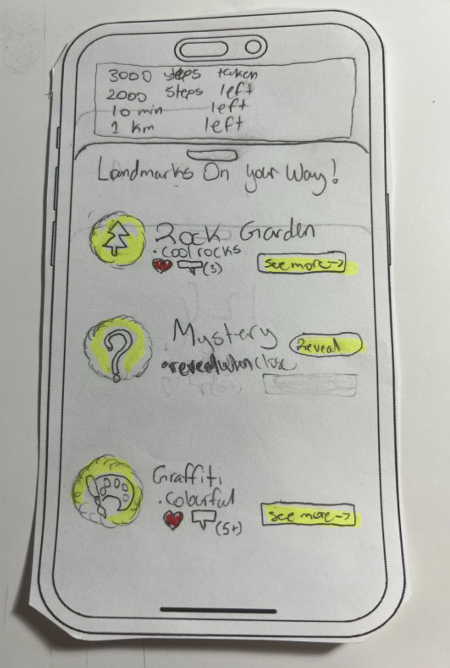 3000 steps taken
2000 steps left
10 min left
1 km left
Landmarks On your Way!
Rock Garden
• cool rocks
(3)
see more →
?
Mystery
Reveal
• reveal when close
Graffiti
• colourful
(5+)
see more →